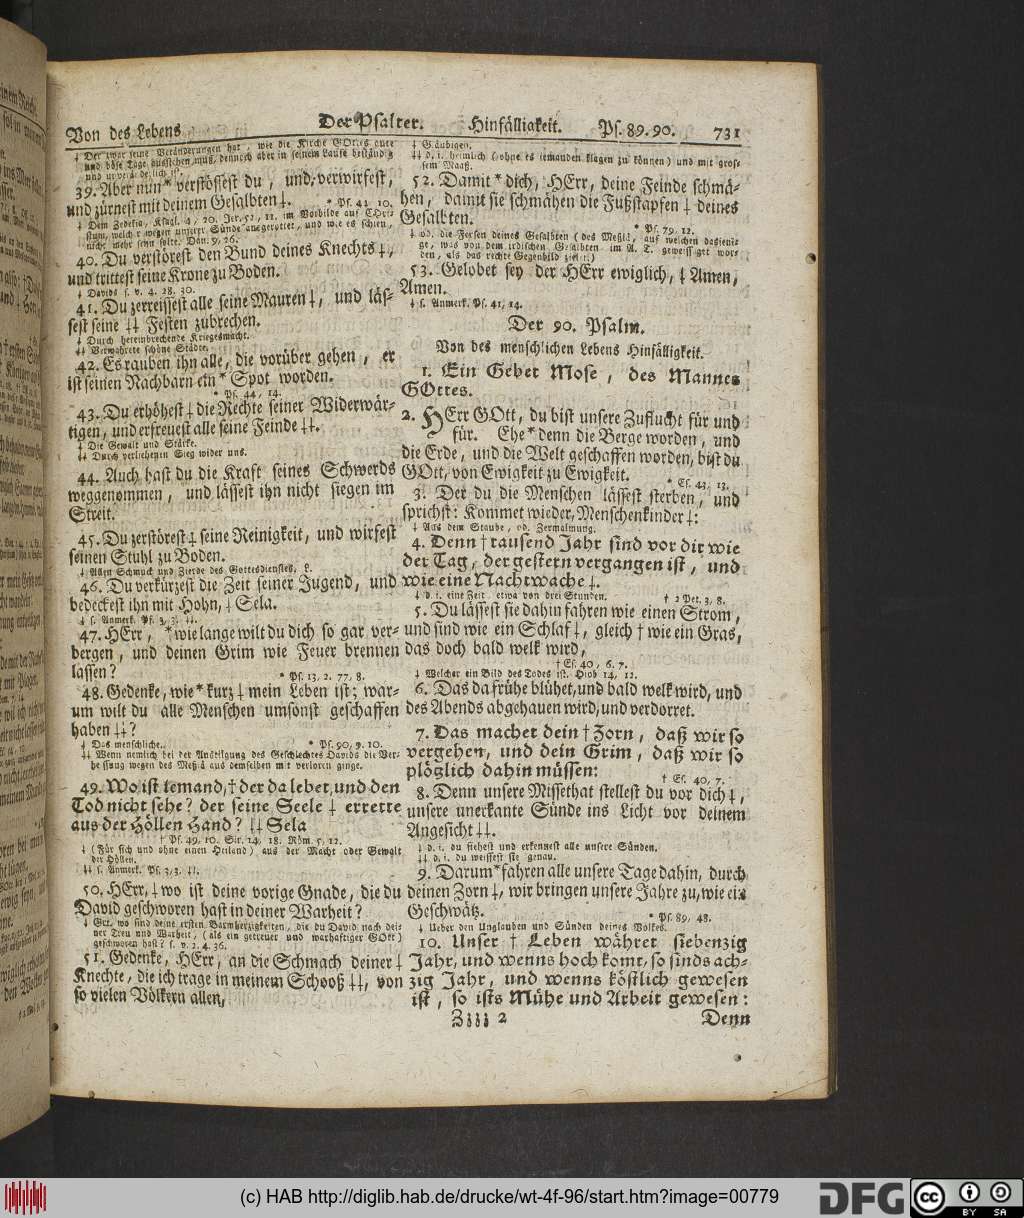 Von des Lebens Der Psalter. Hinfälligkeit. Ps. 89. 90. 731
‡ Der zwar seine Veränderungen hat, wie die Kirche GOttes gute
und böse Tage ausstehen muß, dennoch aber in seinem Laufe beständig
und unveränderlich ist.
39. Aber nun * verstössest du, und verwirfest,
und zürnest mit deinem Gesalbten ‡. * Ps. 43, 10.
‡ Dem Zedekia, Kngl. 4, 20. Jer. 52, 11. im Vorbilde auf Chri-
stum, welcher wegen unserer Sünde ausgerottet, und wie es schien,
nicht mehr seyn solte. Dan. 9, 26.
40. Du verstörest den Bund deines Knechts ‡,
und trittest seine Krone zu Boden.
‡ Davids s. v. 4. 28. 30.
41. Du zerreissest alle seine Mauren ‡, und läs-
sest seine ‡‡ Festen zubrechen.
‡ Durch hereinbrechende Kriegesmacht.
‡‡ Verwahrete schöne Städte.
42. Es rauben ihn alle, die vorüber gehen, er
ist seinen Nachbarn ein * Spot worden.
* Ps. 44, 14.
43. Du erhöhest ‡ die Rechte seiner Widerwär-
tigen, und erfreuest alle seine Feinde ‡‡.
‡ Die Gewalt und Stärke.
‡‡ Durch verliehenen Sieg wider uns.
44. Auch hast du die Kraft seines Schwerds
weggenommen, und lässest ihn nicht siegen im
Streit.
45. Du zerstörest ‡ seine Reinigkeit, und wirfest
seinen Stuhl zu Boden.
‡ Allen Schmuck und Zierde des Gottesdienstes, L.
46. Du verkürzest die Zeit seiner Jugend, und
bedeckest ihn mit Hohn, ‡ Sela.
‡ s. Anmerk. Ps. 3, 3. ‡‡.
47. HErr, * wie lange wilt du dich so gar ver-
bergen, und deinen Grim wie Feuer brennen
lassen? * Ps. 13, 2. 77, 8.
48. Gedenke, wie * kurz ‡ mein Leben ist; war-
um wilt du alle Menschen umsonst geschaffen
haben ‡‡?
‡ Das menschliche. * Ps. 90, 9. 10.
‡‡ Wenn nemlich bei der Austilgung des Geschlechtes Davids die Ver-
heissung wegen des Meßiä aus demselben mit verloren ginge.
49. Wo ist iemand, † der da lebet, und den
Tod nicht sehe? der seine Seele ‡ errette
aus der Höllen Hand? ‡‡ Sela
† Ps. 49, 10. Sir. 14, 18. Röm. 5, 12.
‡ (Für sich und ohne einen Heiland) aus der Macht oder Gewalt
der Höllen.
‡‡ s. Anmerk. Ps. 3, 3. ‡‡.
50. HErr, ‡ wo ist deine vorige Gnade, die du
David geschworen hast in deiner Warheit?
‡ Grt. wo sind deine ersten Barmherzigkeiten, die du David nach dei-
ner Treu und Warheit, (als ein getreuer und warhaftiger GOtt)
geschworen hast? s. v. 2. 4. 36.
51. Gedenke, HErr, an die Schmach deiner ‡
Knechte, die ich trage in meinem Schooß ‡‡, von
so vielen Völkern allen,
‡ Gläubigen.
‡‡ d. i. heimlich (ohne es iemanden klagen zu können) und mit gros-
sem Maaß.
52. Damit * dich, HErr, deine Feinde schmä-
hen, damit sie schmähen die Fußstapfen ‡ deines
Gesalbten. * Ps. 79, 12.
‡ od. die Fersen deines Gesalbten (des Meßiä, auf welchen dasjeni-
ge, was von dem irdischen Gesalbten im A. T. geweissaget wor-
den, als das rechte Gegenbild zielet.)
53. Gelobet sey der HErr ewiglich, ‡ Amen,
Amen.
‡ s. Anmerk. Ps. 41, 14.
Der 90. Psalm.
Von des menschlichen Lebens Hinfälligkeit.
1. Ein Gebet Mose, des Mannes
GOttes.
2. HErr GOtt, du bist unsere Zuflucht für und
für. Ehe * denn die Berge worden, und
die Erde, und die Welt geschaffen worden, bist du
GOtt, von Ewigkeit zu Ewigkeit.
* Es. 43, 13.
3. Der du die Menschen lässest sterben, und
sprichst: Kommet wieder, Menschenkinder ‡:
‡ Aus dem Staube, od. Zermalmung.
4. Denn † tausend Jahr sind vor dir wie
der Tag, der gestern vergangen ist, und
wie eine Nachtwache ‡.
‡ d. i. eine Zeit etwa von drei Stunden. † 2 Pet. 3, 8.
5. Du lässest sie dahin fahren wie einen Strom,
und sind wie ein Schlaf ‡, gleich † wie ein Gras,
das doch bald welk wird,
† Es. 40, 6. 7.
‡ Welcher ein Bild des Todes ist. Hiob 14, 12.
6. Das da frühe blühet, und bald welk wird, und
des Abends abgehauen wird, und verdorret.
7. Das machet dein † Zorn, daß wir so
vergehen, und dein Grim, daß wir so
plöglich dahin müssen:
† Es. 40, 7.
8. Denn unsere Missethat stellest du vor dich ‡,
unsere unerkante Sünde ins Licht vor deinem
Angesicht ‡‡.
‡ d. i. du siehest und erkennest alle unsere Sünden.
‡‡ d. i. du weissest sie genau.
9. Darum * fahren alle unsere Tage dahin, durch
deinen Zorn ‡, wir bringen unsere Jahre zu, wie ein
Geschwätz. * Ps. 89, 48.
‡ Ueber den Unglauben und Sünden deines Volkes.
10. Unser † Leben währet siebenzig
Jahr, und wenns hoch komt, so sinds ach-
zig Jahr, und wenns köstlich gewesen
ist, so ists Mühe und Arbeit gewesen:
Zzzz 2 Denn
(c) HAB http://diglib.hab.de/drucke/wt-4f-96/start.htm?image=00779
DFG
cc
BY SA